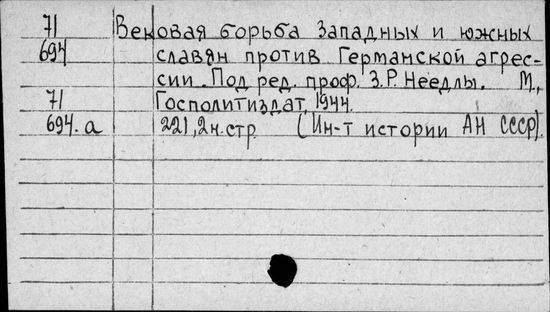 71 Вековая борьба западных и южных
694 славян против Германской агрес-
сии. Под ред. проф. З.Р. Неедлы. М.,
71 Госполитиздат, 1944.
694.а 221, 2 н. стр. (Ин-т истории АН СССР).